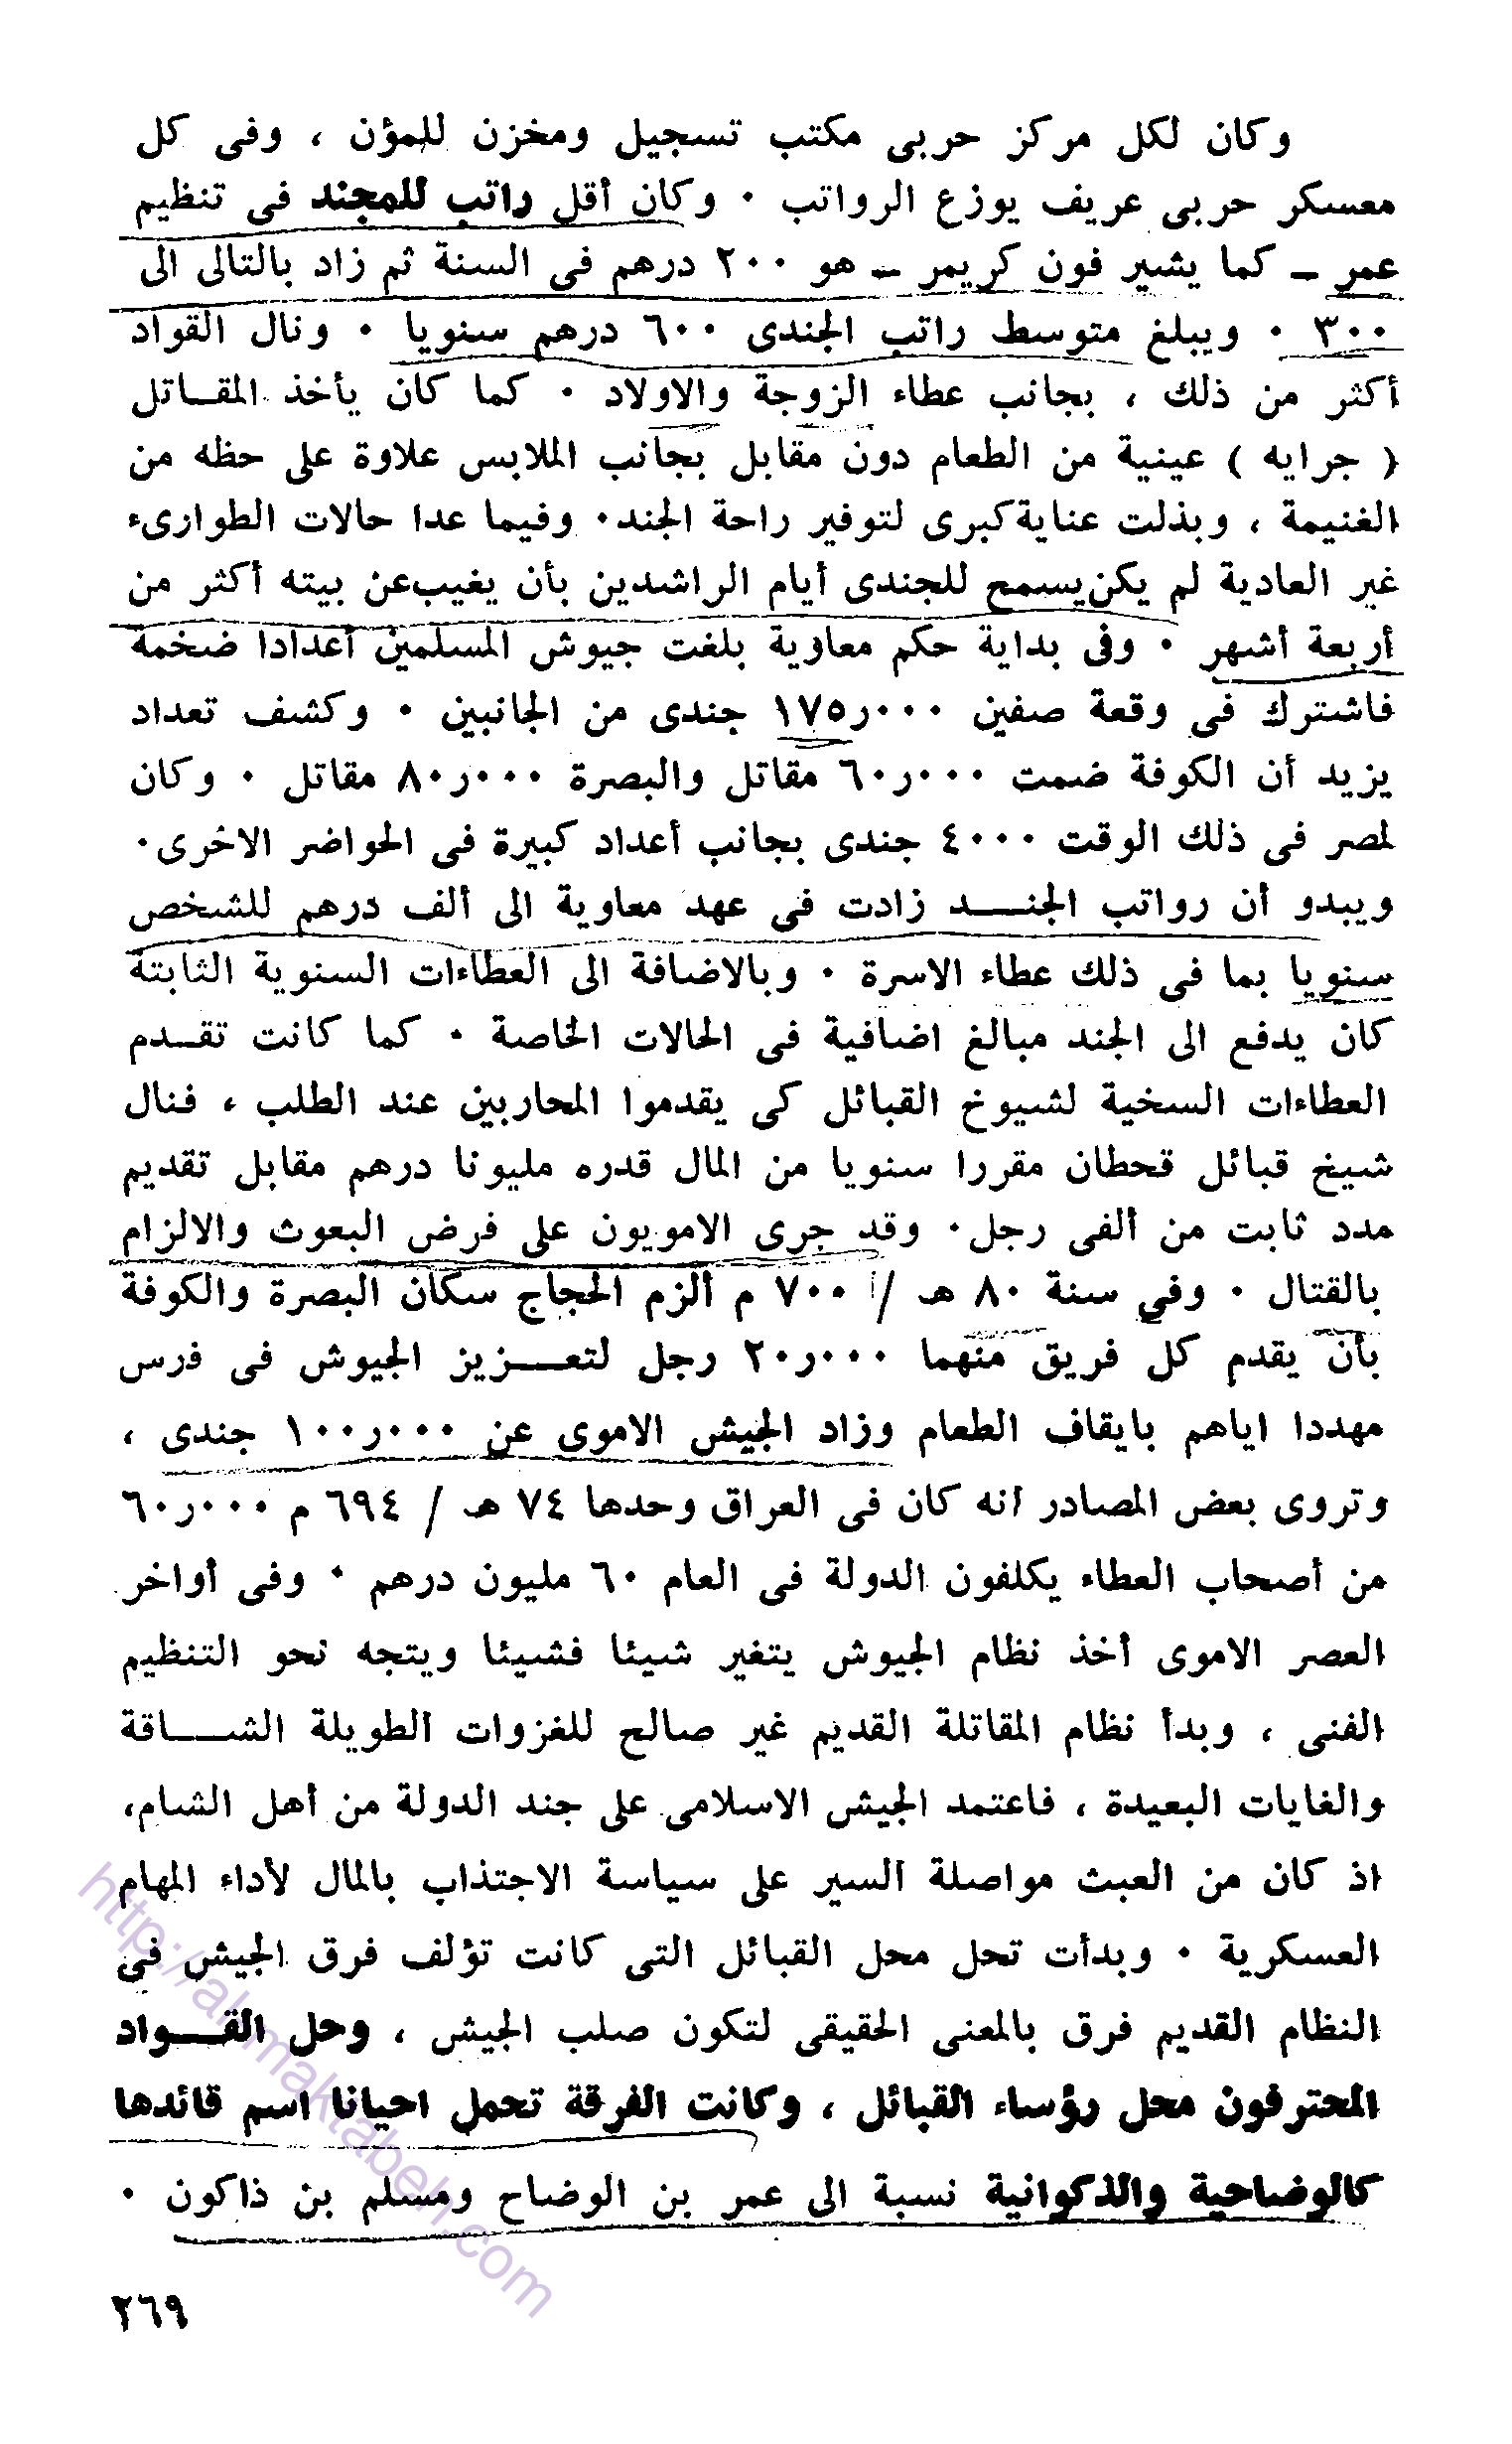 وكان لكل مركز حربى مكتب تسجيل ومخزن للمؤن ، وفى كل
معسكر حربى عريف يوزع الرواتب ٠ وكان أقل راتب للمجند فى تنظيم
عمر ــ كما يشير فون كريمر ــ هو ٢٠٠ درهم فى السنة ثم زاد بالتالى الى
٣٠٠ ٠ ويبلغ متوسط راتب الجندى ٦٠٠ درهم سنويا ٠ ونال القواد
أكثر من ذلك ، بجانب عطاء الزوجة والاولاد ٠ كما كان يأخذ المقــاتل
( جرايه ) عينية من الطعام دون مقابل بجانب الملابس علاوة على حظه من
الغنيمة ، وبذلت عناية كبرى لتوفير راحة الجند ٠ وفيما عدا حالات الطوارىء
غير العادية لم يكن يسمح للجندى أيام الراشدين بأن يغيب عن بيته أكثر من
أربعة أشهر ٠ وفى بداية حكم معاوية بلغت جيوش المسلمين أعدادا ضخمة
فاشترك فى وقعة صفين ١٧٥ر٠٠٠ جندى من الجانبين ٠ وكشف تعداد
يزيد أن الكوفة ضمت ٦٠ر٠٠٠ مقاتل والبصرة ٨٠ر٠٠٠ مقاتل ٠ وكان
لمصر فى ذلك الوقت ٤٠٠٠ جندى بجانب أعداد كبيرة فى الحواضر الاخرى ٠
ويبدو أن رواتب الجنـــد زادت فى عهد معاوية الى ألف درهم للشخص
سنويا بما فى ذلك عطاء الاسرة ٠ وبالاضافة الى العطاءات السنوية الثابتة
كان يدفع الى الجند مبالغ اضافية فى الحالات الخاصة ٠ كما كانت تقــدم
العطاءات السخية لشيوخ القبائل كى يقدموا المحاربين عند الطلب ، فنال
شيخ قبائل قحطان مقررا سنويا من المال قدره مليونا درهم مقابل تقديم
مدد ثابت من ألفى رجل ٠ وقد جرى الامويون على فرض البعوث والالزام
بالقتال ٠ وفى سنة ٨٠ هـ / ٧٠٠ م ألزم الحجاج سكان البصرة والكوفة
بأن يقدم كل فريق منهما ٢٠ر٠٠٠ رجل لتعـــزيز الجيوش فى فرس
مهددا اياهم بايقاف الطعام وزاد الجيش الاموى عن ١٠٠ر٠٠٠ جندى ،
وتروى بعض المصادر انه كان فى العراق وحدها ٧٤ هـ / ٦٩٤ م ٦٠ر٠٠٠
من أصحاب العطاء يكلفون الدولة فى العام ٦٠ مليون درهم ٠ وفى أواخر
العصر الاموى أخذ نظام الجيوش يتغير شيئا فشيئا ويتجه نحو التنظيم
الفنى ، وبدأ نظام المقاتلة القديم غير صالح للغزوات الطويلة الشـــاقة
والغايات البعيدة ، فاعتمد الجيش الاسلامى على جند الدولة من أهل الشام،
اذ كان من العبث مواصلة السير على سياسة الاجتذاب بالمال لأداء المهام
العسكرية ٠ وبدأت تحل محل القبائل التى كانت تؤلف فرق الجيش فى
النظام القديم فرق بالمعنى الحقيقى لتكون صلب الجيش ، وحل القـــواد
المحترفون محل رؤساء القبائل ، وكانت الفرقة تحمل احيانا اسم قائدها
كالوضاحية والذكوانية نسبة الى عمر بن الوضاح ومسلم بن ذاكون ٠
٢٦٩
http://al-maktabeh.com